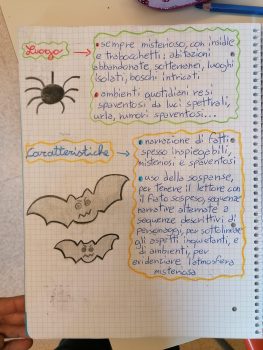 Luogo
• sempre misterioso, con insidie
e trabocchetti; abitazioni
abbandonate, sotterranei, luoghi
isolati, boschi intricati
• ambienti quotidiani resi
spaventosi da luci spettrali,
urla, rumori spaventosi...
Caratteristiche
• narrazione di fatti
spesso inspiegabili,
misteriosi e spaventosi
• uso della suspense,
per tenere il lettore con
il fiato sospeso, sequenze
narrative alternate a
sequenze descrittivi di
personaggi, per sottolineare
gli aspetti inquietanti, e
di ambienti, per
evidenziare l'atmosfera
misteriosa